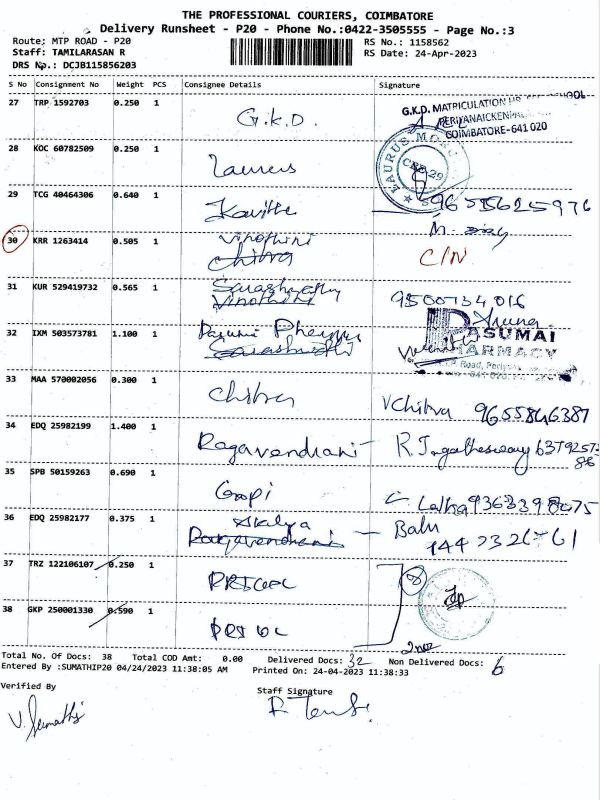 THE PROFESSIONAL COURIERS, COIMBATORE
Delivery Runsheet - P20 - Phone No.:0422-3505555 - Page No.:3
Route: MTP ROAD - P20 RS No.: 1158562
Staff: TAMILARASAN R RS Date: 24-Apr-2023
DRS No.: DCJB115856203
S No Consignment No Weight PCS Consignee Details Signature
27 TRP 1592703 0.250 1 G.K.D. G.K.D. MATRICULATION SCHOOL
PERIYANAICKEN
COIMBATORE-641 020
28 KOC 60782509 0.250 1 Laurus LAURUS
CBE-29
29 TCG 40464306 0.640 1 Kavitha 9655625976
M.
30 KRR 1263414 0.505 1 Vinothini
Chitra C/N
31 KUR 529419732 0.565 1
Vinothini 9500734016
Aruna
32 IXM 503573781 1.100 1 PASUMAI
PHARMACY
Road, Periya
641 020
33 MAA 570002056 0.300 1 Chitra V Chitra 9655846387
34 EDQ 25982199 1.400 1 Ragavendhani
35 SPB 50159263 0.690 1 Gopi Latha
36 EDQ 25982177 0.375 1 Akalya
Ragavendhani - Balu
37 TRZ 122106107 0.250 1
38 GKP 250001330 0.590 1
Total No. Of Docs: 38 Total COD Amt: 0.00 Delivered Docs: 32 Non Delivered Docs: 6
Entered By :SUMATHIP20 04/24/2023 11:38:05 AM Printed On: 24-04-2023 11:38:33
Verified By Staff Signature
V. Sumathi